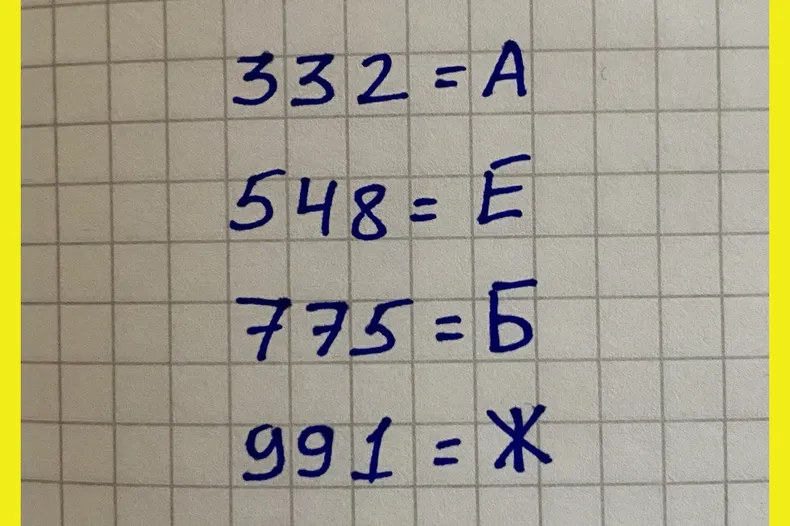 332 = А
548 = Е
775 = Б
991 = Ж